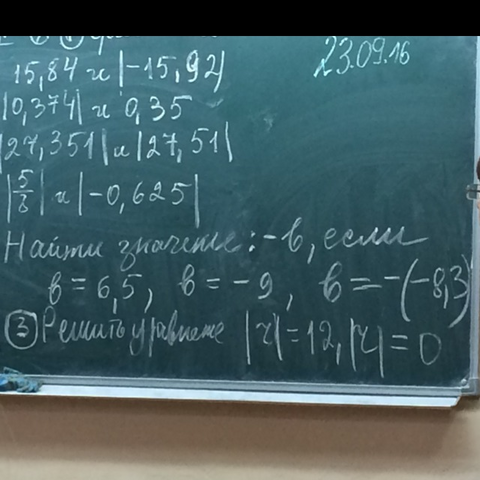 23.09.16
15,84 и |-15,92|
|0,374| и 0,35
|27,351| и |27,51|
|5/8| и |-0,625|
Найти значение: -в, если
в = 6,5, в = -9, в = -(-8,3)
③ Решить уравнение |х| = 12, |х| = 0